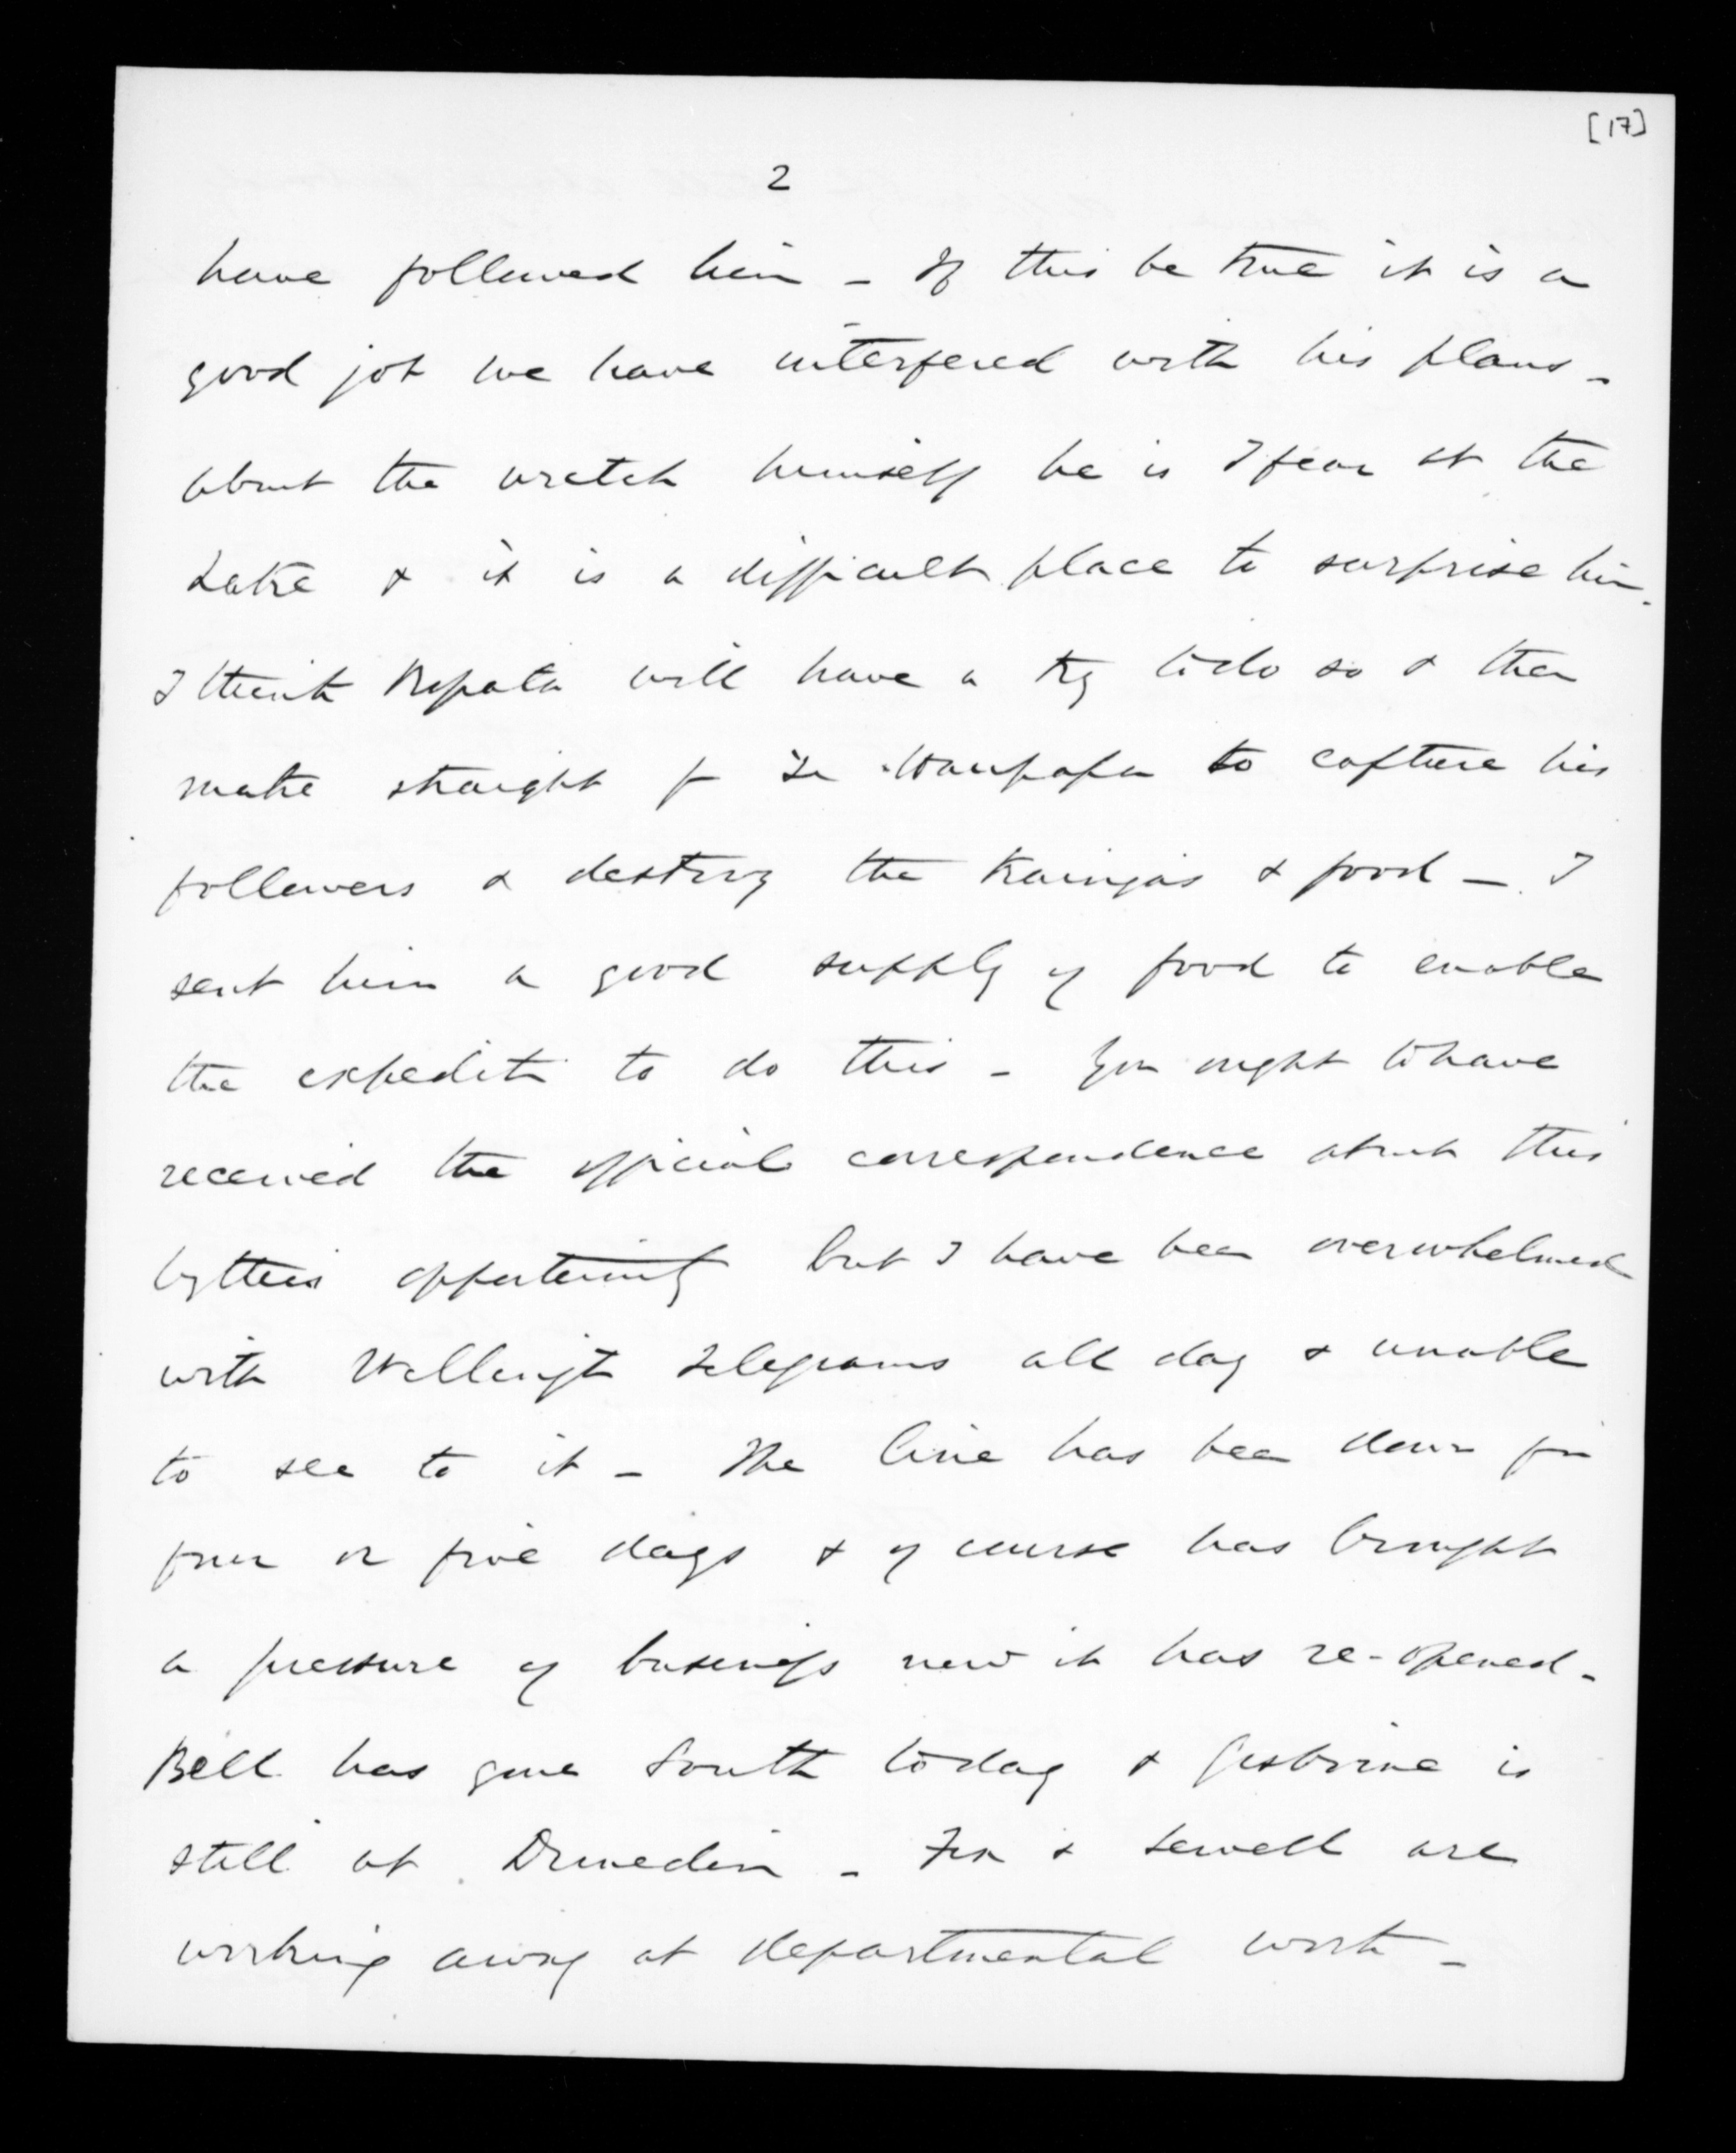 [17]
2
have followed him - If this be true it is a
good job we have interfered with his plans -
about the wretch himself he is I fear at the
Lake & it is a difficult place to surprise him.
I think Ropata will have a try to do so & then
make straight for Te Houpapa to capture his
followers & destroy the Kaingas & food - I
sent him a good supply of food to enable
the expedit to do this - You ought to have
received the official correspondence about this
by this opportunity but I have been overwhelmed
with Wellingt telegrams all day & unable
to see to it - The line has been down for
four or five days & of course has brought
a pressure of business now it has re-opened -
Bell has gone South today & Gisborne is
still at Dunedin - Fox & Sewell are
working away at departmental work -